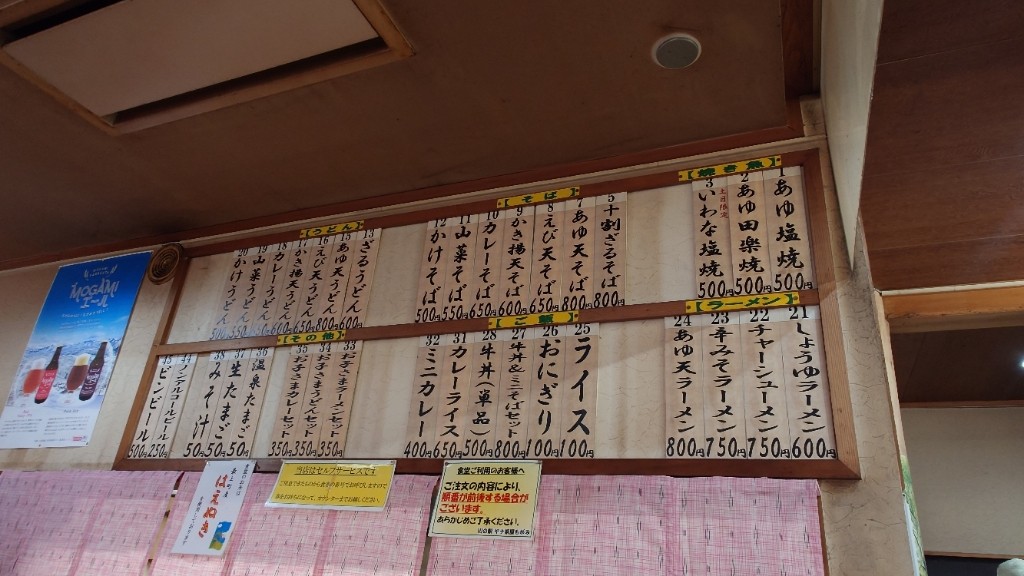 【焼き魚】
1あゆ塩焼500円
2あゆ田楽焼500円
土日限定
3いわな塩焼500円
【そば】
5十割ざるそば800円
7あゆ天そば800円
8えび天そば650円
9かき揚天そば600円
10カレーそば650円
11山菜そば550円
12かけそば500円
【うどん】
13ざるうどん670円
15あゆ天うどん800円
16えび天うどん650円
17かき揚天うどん600円
18カレーうどん
19山菜うどん
20かけうどん
【ラーメン】
21しょうゆラーメン600円
22チャーシューメン750円
23辛みそラーメン750円
24あゆ天ラーメン800円
【ご飯】
25ライス100円
26おにぎり100円
27牛丼&ミニそばセット800円
28牛丼(単品)500円
31カレーライス650円
32ミニカレー400円
【その他】
33お子さまラーメンセット350円
34お子さまうどんセット350円
35お子さまカレーセット350円
36温泉たまご50円
37生たまご50円
38みそ汁50円
44ノンアルコールビール250円
ビンビール500円
MOGAMI
エール
はえぬき
当店はセルフサービスです
食堂ご利用のお客様へ
ご注文の内容により、
順番が前後する場合が
ございます。
あらかじめご了承ください。